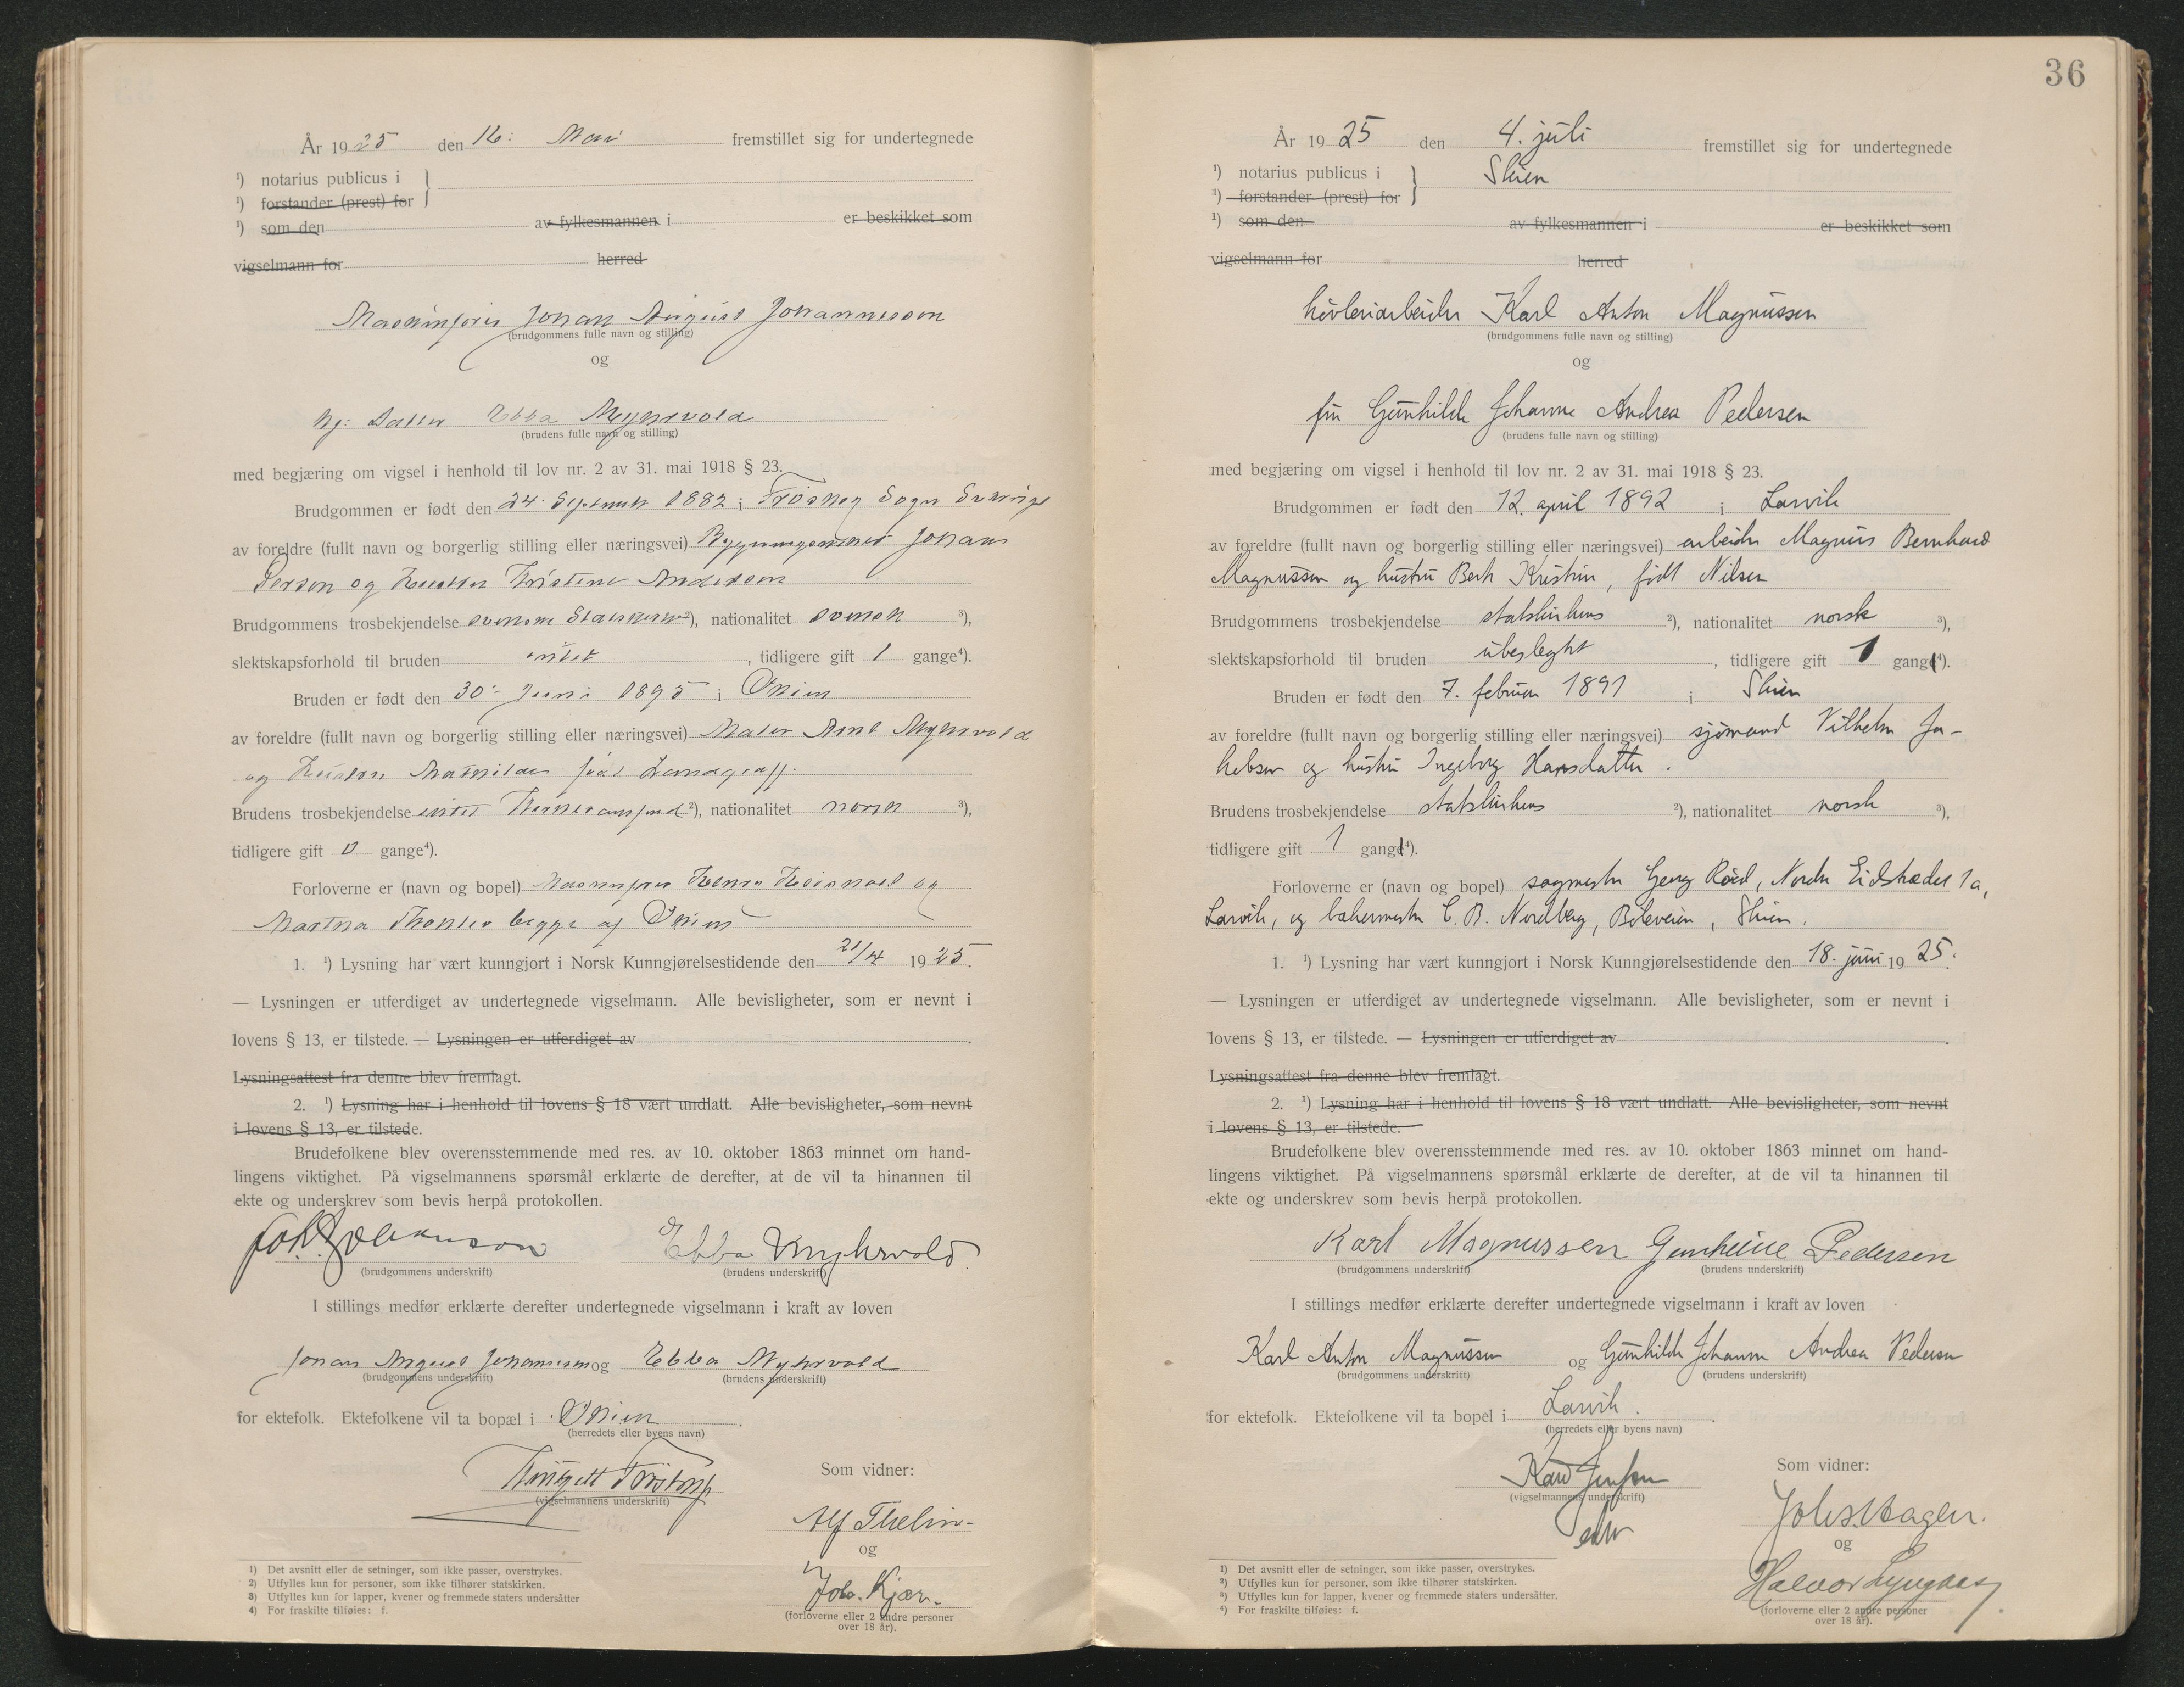 År 1925 den 16: Mai fremstillet sig for undertegnede
¹) notarius publicus i
¹) forstander (prest) for
¹) som den av fylkesmannen i er beskikket som
vigselmann for herred
Johan August Johannesson
(brudgommens fulle navn og stilling)
og
Datter Ebba Myhrvold
(brudens fulle navn og stilling)
med begjæring om vigsel i henhold til lov nr. 2 av 31. mai 1918 § 23.
Brudgommen er født den 24. September 1882 i Sogn Sverrige
av foreldre (fullt navn og borgerlig stilling eller næringsvei) Johans
Person og Hustru Kristine Anderson
Brudgommens trosbekjendelse svenske Statskirke ²), nationalitet svensk ³),
slektskapsforhold til bruden intet, tidligere gift 1 gange⁴).
Bruden er født den 30- Juni 1895 i Skien
av foreldre (fullt navn og borgerlig stilling eller næringsvei) Maler Myhrvold
og Hustru Mathilde født
Brudens trosbekjendelse intet Kirkesamfund ²), nationalitet norsk ³),
tidligere gift 0 gange⁴).
Forloverne er (navn og bopel) og
Martha begge af Skien
1. ¹) Lysning har vært kunngjort i Norsk Kunngjørelsestidende den 21/4 1925.
— Lysningen er utferdiget av undertegnede vigselmann. Alle bevisligheter, som er nevnt i
lovens § 13, er tilstede. — Lysningen er utferdiget av .
Lysningsattest fra denne blev fremlagt.
2. ¹) Lysning har i henhold til lovens § 18 vært undlatt. Alle bevisligheter, som nevnt
i lovens § 13, er tilstede.
Brudefolkene blev overensstemmende med res. av 10. oktober 1863 minnet om hand-
lingens viktighet. På vigselmannens spørsmål erklærte de derefter, at de vil ta hinannen til
ekte og underskrev som bevis herpå protokollen.
Ebba Myhrvold.
(brudgommens underskrift) (brudens underskrift)
I stillings medfør erklærte derefter undertegnede vigselmann i kraft av loven
Johan August Johannesson og Ebba Myhrvold
(brudgommens underskrift) (brudens underskrift)
for ektefolk. Ektefolkene vil ta bopæl i Skien.
(herredets eller byens navn)
Som vidner:
(vigselmannens underskrift)
Alf Thelin-
og
Joh. Kjær.
(forloverne eller 2 andre personer
over 18 år).
1) Det avsnitt eller de setninger, som ikke passer, overstrykes.
2) Utfylles kun for personer, som ikke tilhører statskirken.
3) Utfylles kun for lapper, kvener og fremmede staters undersåtter
4) For fraskilte tilføies: f.
36
År 1925 den 4. juli fremstillet sig for undertegnede
¹) notarius publicus i Skien
¹) forstander (prest) for
¹) som den av fylkesmannen i er beskikket som
vigselmann for herred
høvleriarbeider Karl Anton Magnussen
(brudgommens fulle navn og stilling)
og
fru Gunhilde Johanne Andrea Pedersen
(brudens fulle navn og stilling)
med begjæring om vigsel i henhold til lov nr. 2 av 31. mai 1918 § 23.
Brudgommen er født den 12. april 1892 i Larvik
av foreldre (fullt navn og borgerlig stilling eller næringsvei) arbeider Magnus Bernhard
Magnussen og hustru Kristine, født Nilsen
Brudgommens trosbekjendelse statskirkens ²), nationalitet norsk ³),
slektskapsforhold til bruden ubeslegtet, tidligere gift 1 gang⁴).
Bruden er født den 7. februar 1891 i Skien
av foreldre (fullt navn og borgerlig stilling eller næringsvei) sjømand Vilhelm Ja-
kobsen og hustru Ingeborg Hansdatter.
Brudens trosbekjendelse statskirkens ²), nationalitet norsk ³),
tidligere gift 1 gang⁴).
Forloverne er (navn og bopel) sagmester Georg Røed, Nordre Eidstrædet 1a,
Larvik, og bakermester C. B. Nordberg, Boleveien, Skien.
1. ¹) Lysning har vært kunngjort i Norsk Kunngjørelsestidende den 18. juni 1925.
— Lysningen er utferdiget av undertegnede vigselmann. Alle bevisligheter, som er nevnt i
lovens § 13, er tilstede. — Lysningen er utferdiget av .
Lysningsattest fra denne blev fremlagt.
2. ¹) Lysning har i henhold til lovens § 18 vært undlatt. Alle bevisligheter, som nevnt
i lovens § 13, er tilstede.
Brudefolkene blev overensstemmende med res. av 10. oktober 1863 minnet om hand-
lingens viktighet. På vigselmannens spørsmål erklærte de derefter, at de vil ta hinannen til
ekte og underskrev som bevis herpå protokollen.
Karl Magnussen Pedersen
(brudgommens underskrift) (brudens underskrift)
I stillings medfør erklærte derefter undertegnede vigselmann i kraft av loven
Karl Anton Magnussen og Gunhilde Johanne Andrea Pedersen
(brudgommens underskrift) (brudens underskrift)
for ektefolk. Ektefolkene vil ta bopel i Larvik.
(herredets eller byens navn)
Som vidner:
(vigselmannens underskrift)
Johs. Hagen.
og
Halvor
(forloverne eller 2 andre personer
over 18 år).
1) Det avsnitt eller de setninger, som ikke passer, overstrykes.
2) Utfylles kun for personer, som ikke tilhører statskirken.
3) Utfylles kun for lapper, kvener og fremmede staters undersåtter.
4) For fraskilte tilføies: f.